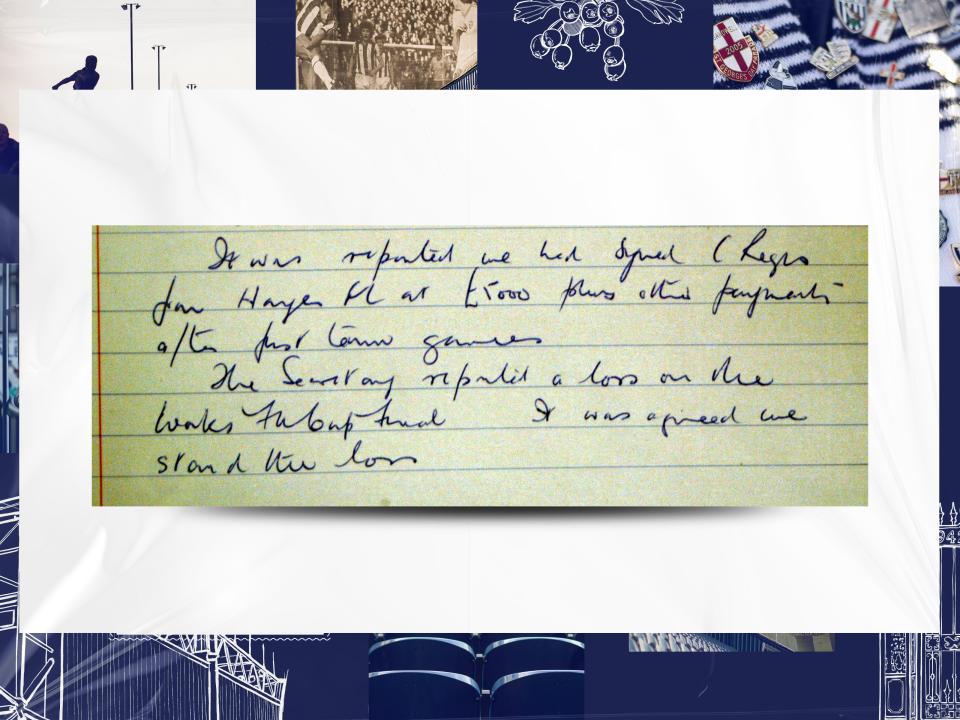 It was reported we had signed C Regis
from Hayes FC at £5000 plus other payments
after first team games
The Secretary reported a loss on the
Works FA Cup final It was agreed we
stand the loss
2005
ST GEORGES DAY